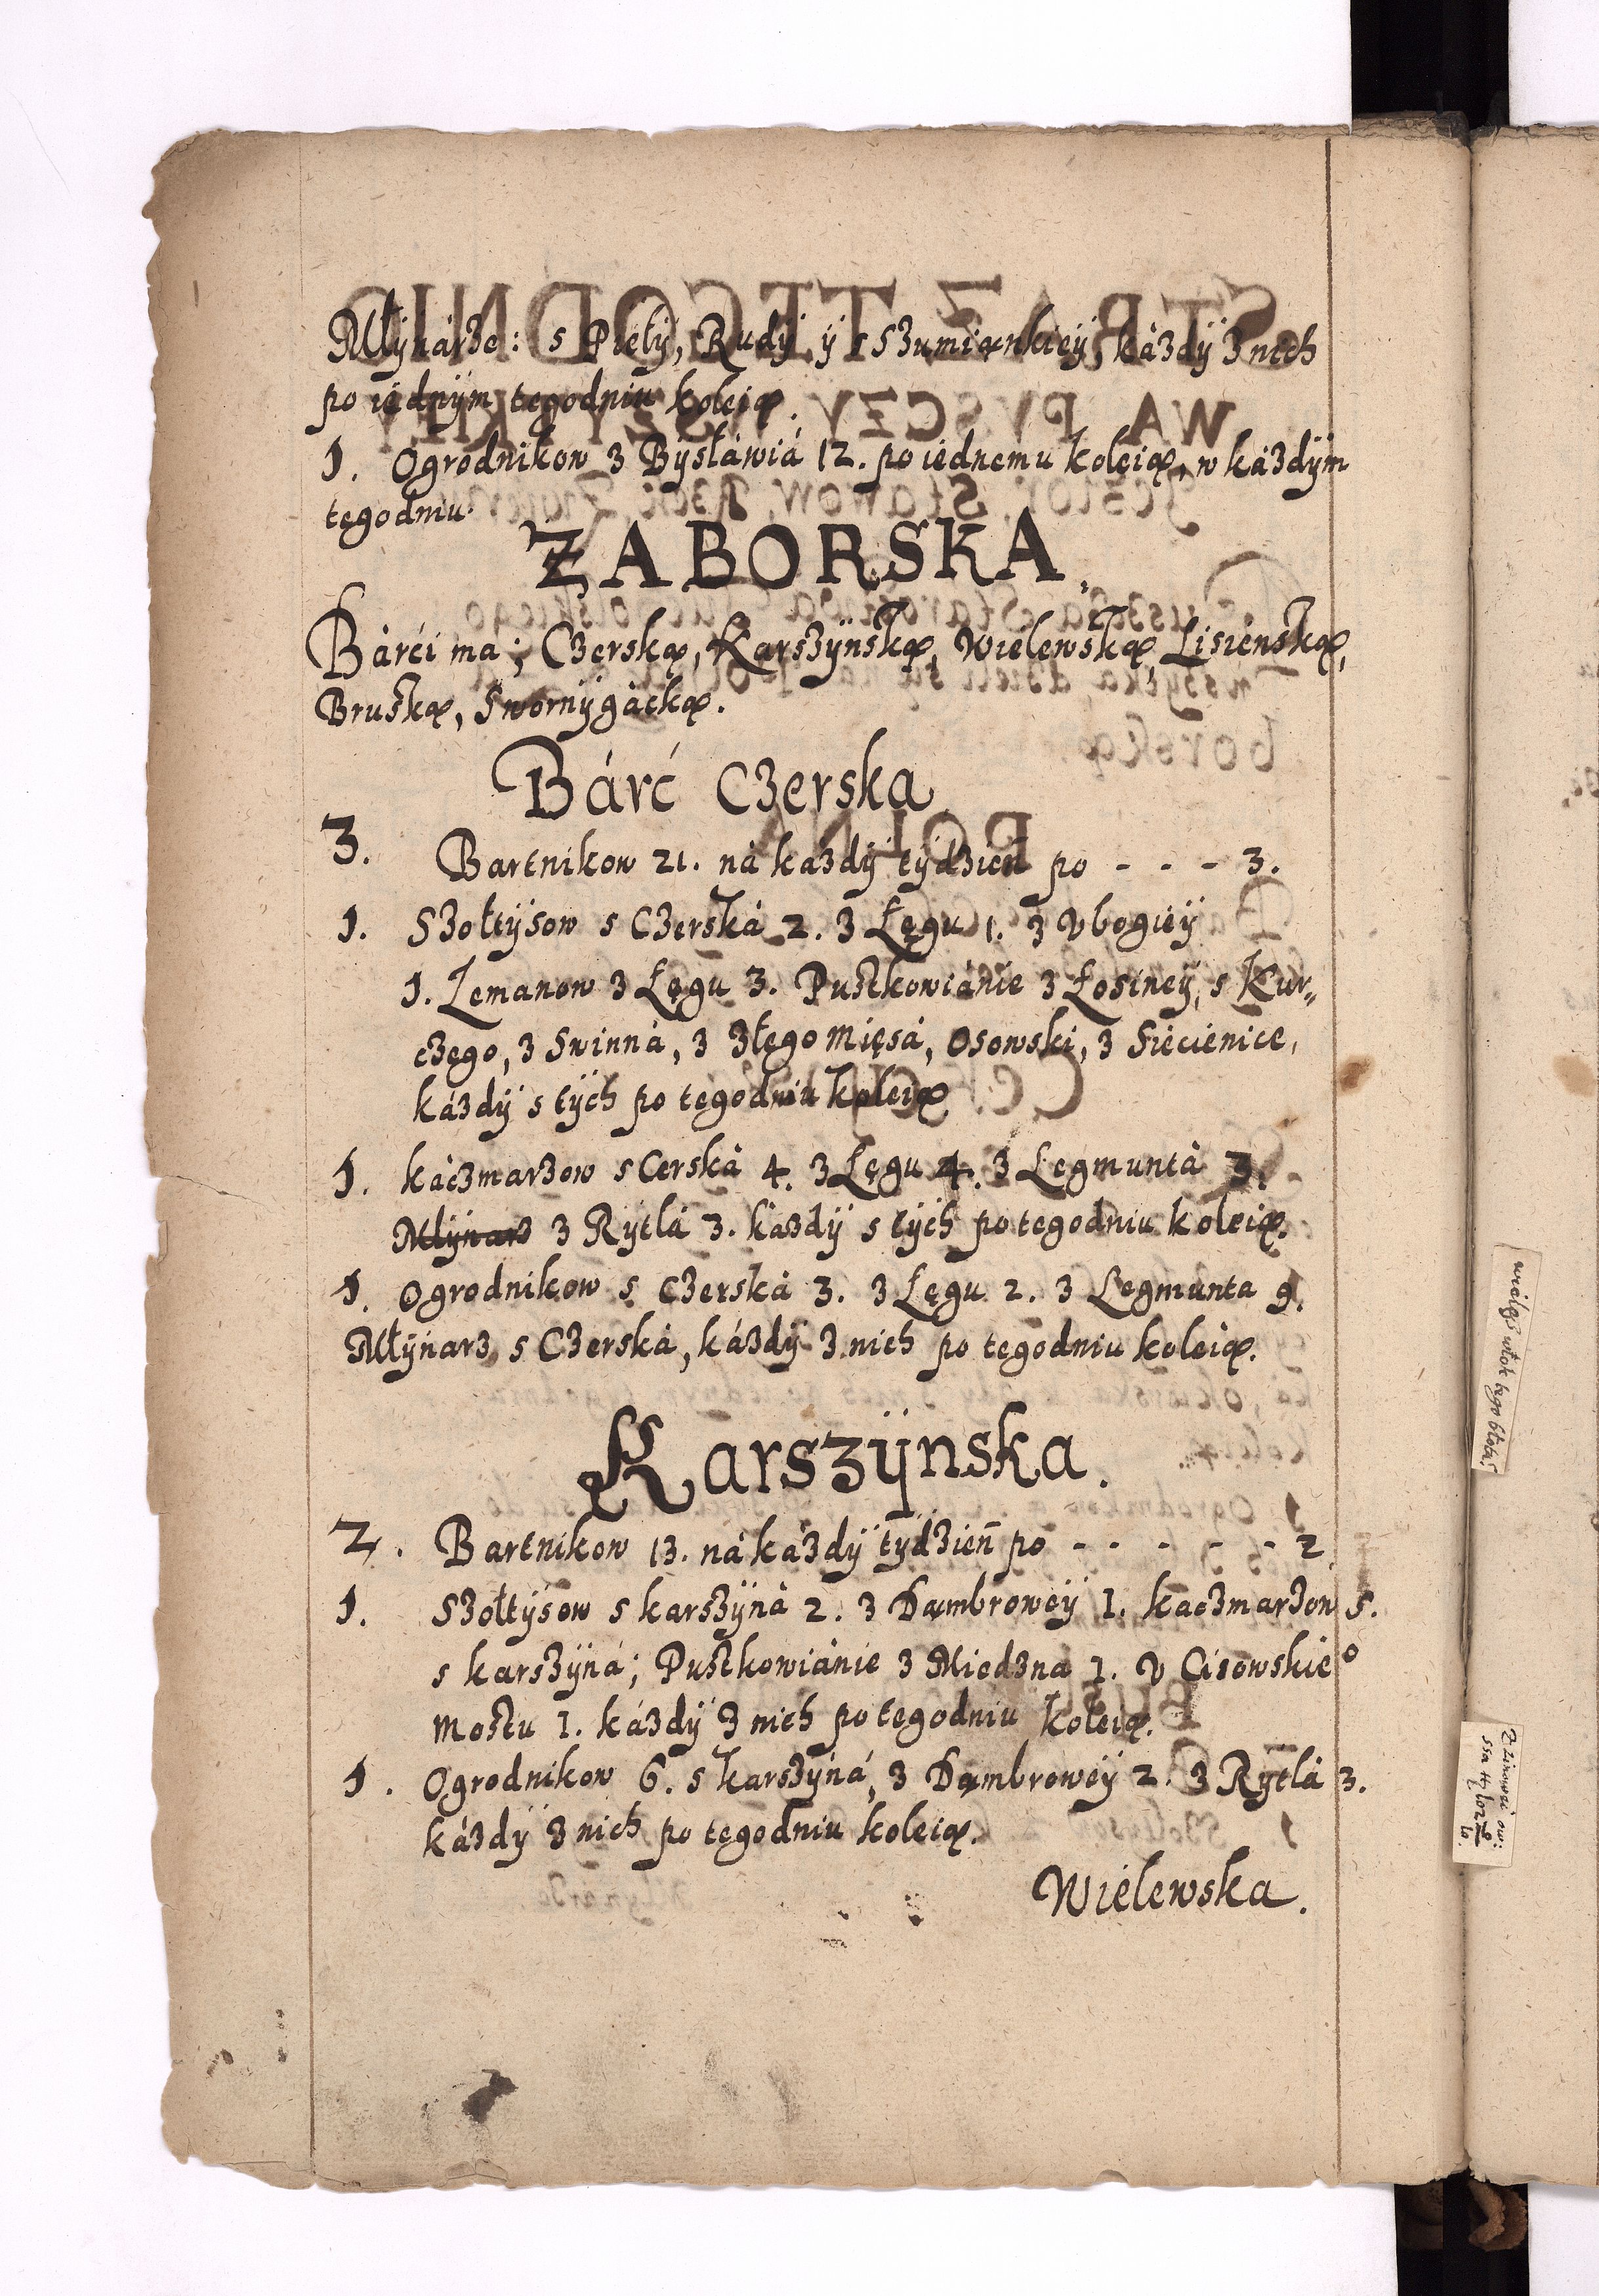 Młÿnárze: s Piły, Rudÿ ÿ s Szumiąnkieÿ, káżdÿ z nich
po iednÿm tegodniu koleią.
1. Ogrodnikow z Bÿsłáwiá 12. po iednemu koleią, w káżdÿm
tegodniu
ZABORSKA.
Bárći ma; Czerską, Karszÿnską, Wielewską, Lisienską,
Bruską, Swornÿgácką.
Bárć Czerska
3. Bartnikow 21. ná każdÿ tÿdzień po - - - 3.
1. Szołtÿsow s Czerská 2. z Łęgu 1. z Vbogieÿ
1. Lemanow z Łęgu 3. Pustkowiánie z Łosineÿ, s Kur„
czego, z Swinná, z Złego Mięsá, Osowski, z Siecienice,
káżdÿ s tÿch po tegodniu koleią
1. káczmarzow s Cerská 4. z Łęgu 4. z Legmuntá 3.
Młÿnarz z Rÿtlá 3. káżdÿ s tÿch po tegodniu koleią.
1. Ogrodnikow s Czerská 3. z Łęgu 2. z Legmunta 9.
Młÿnarz s Czerská, káżdÿ z nich po tegodniu koleią.
Karszÿnska.
2. Bartnikow 13. ná káżdÿ tÿdzień po - - - - - 2
1. Szołtÿsow s karszÿná 2. z Dąmbroweÿ 1. kaczmarzow 5.
s karszÿná; Pustkowiánie z Miedzna 1. V Cisowskie⁰
Mostu 1. káżdÿ z nich po tegodniu koleią.
1. Ogrodnikow 6. s karszÿná, z Dąmbroweÿ 2. z Rÿtlá 3.
káżdÿ z nich po tegodniu koleią.
Wielewska.